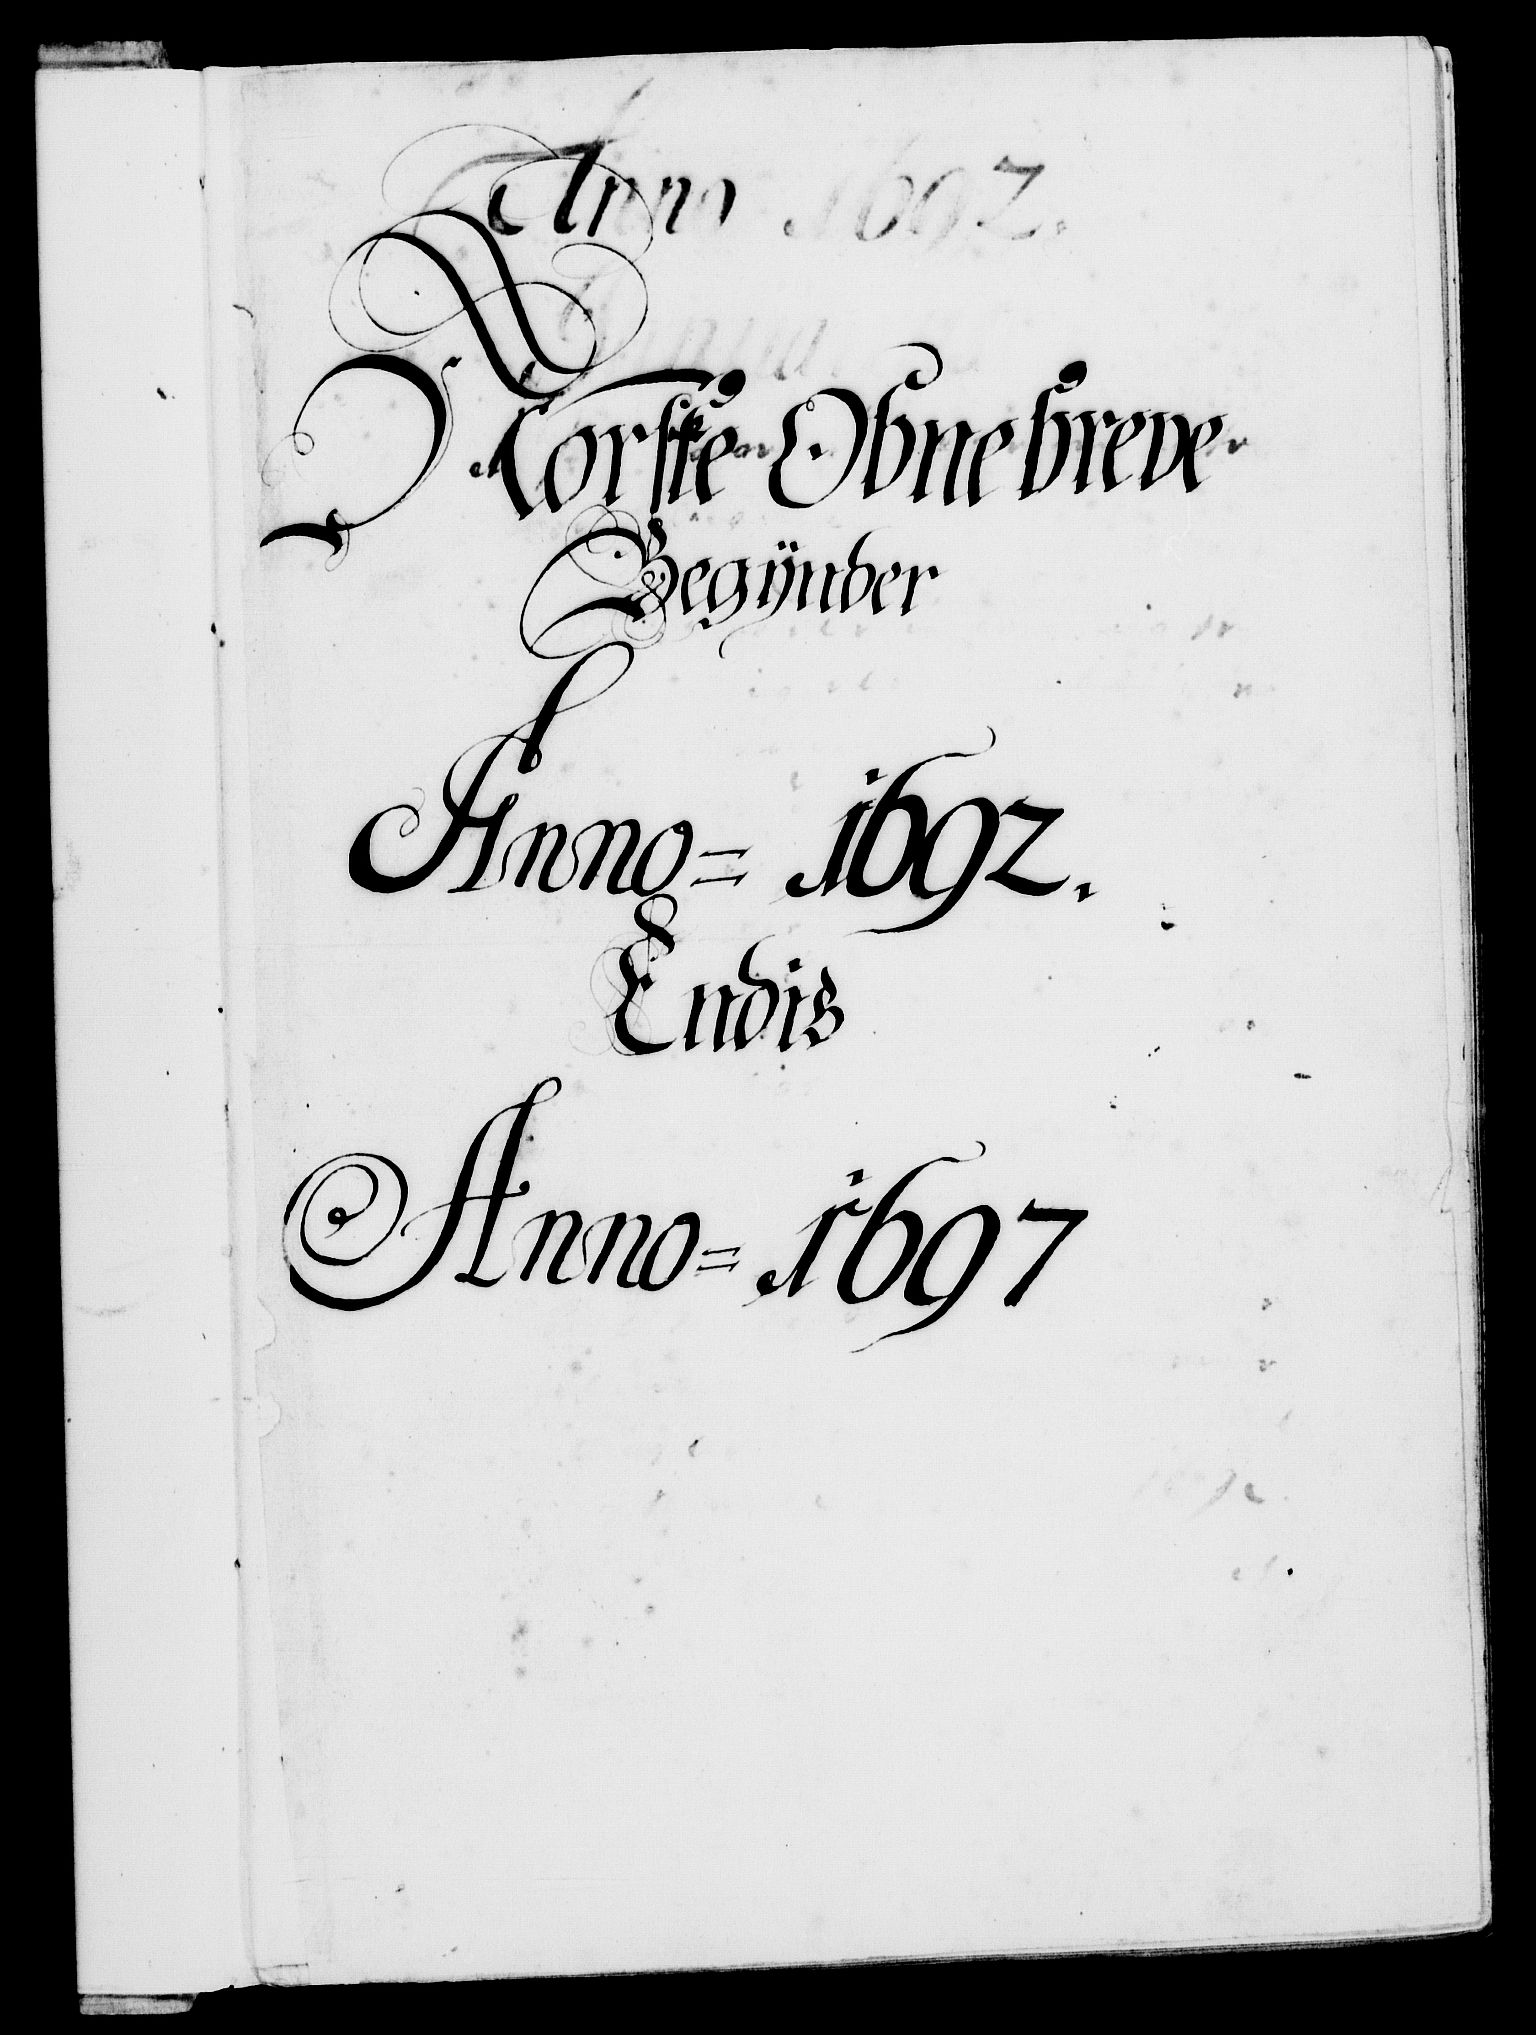 Anno 1692.
Norske Obne breve
Begÿnder
Anno = 1692.
Endis
Anno = 1697